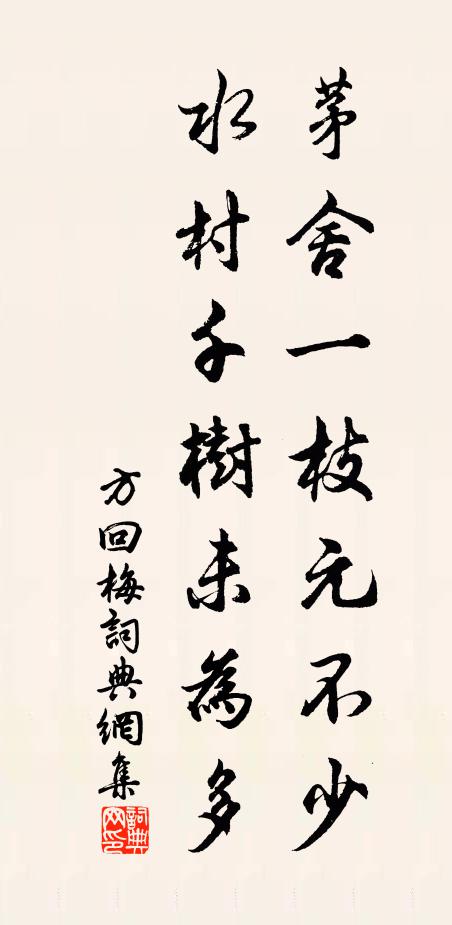 茅舍一枝元不少
水村千樹未為多
方回梅詞典網集
詞典網印